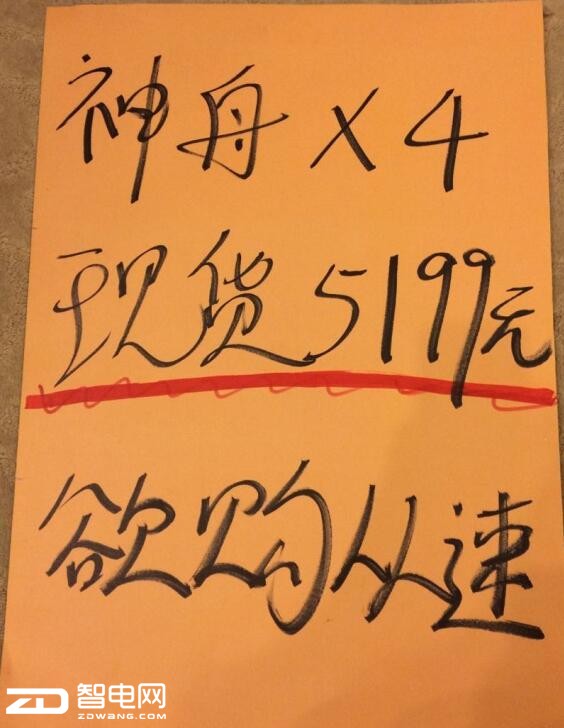 神舟 X4
现货5199元
欲购从速
ZD 智电网
ZDWANG.COM